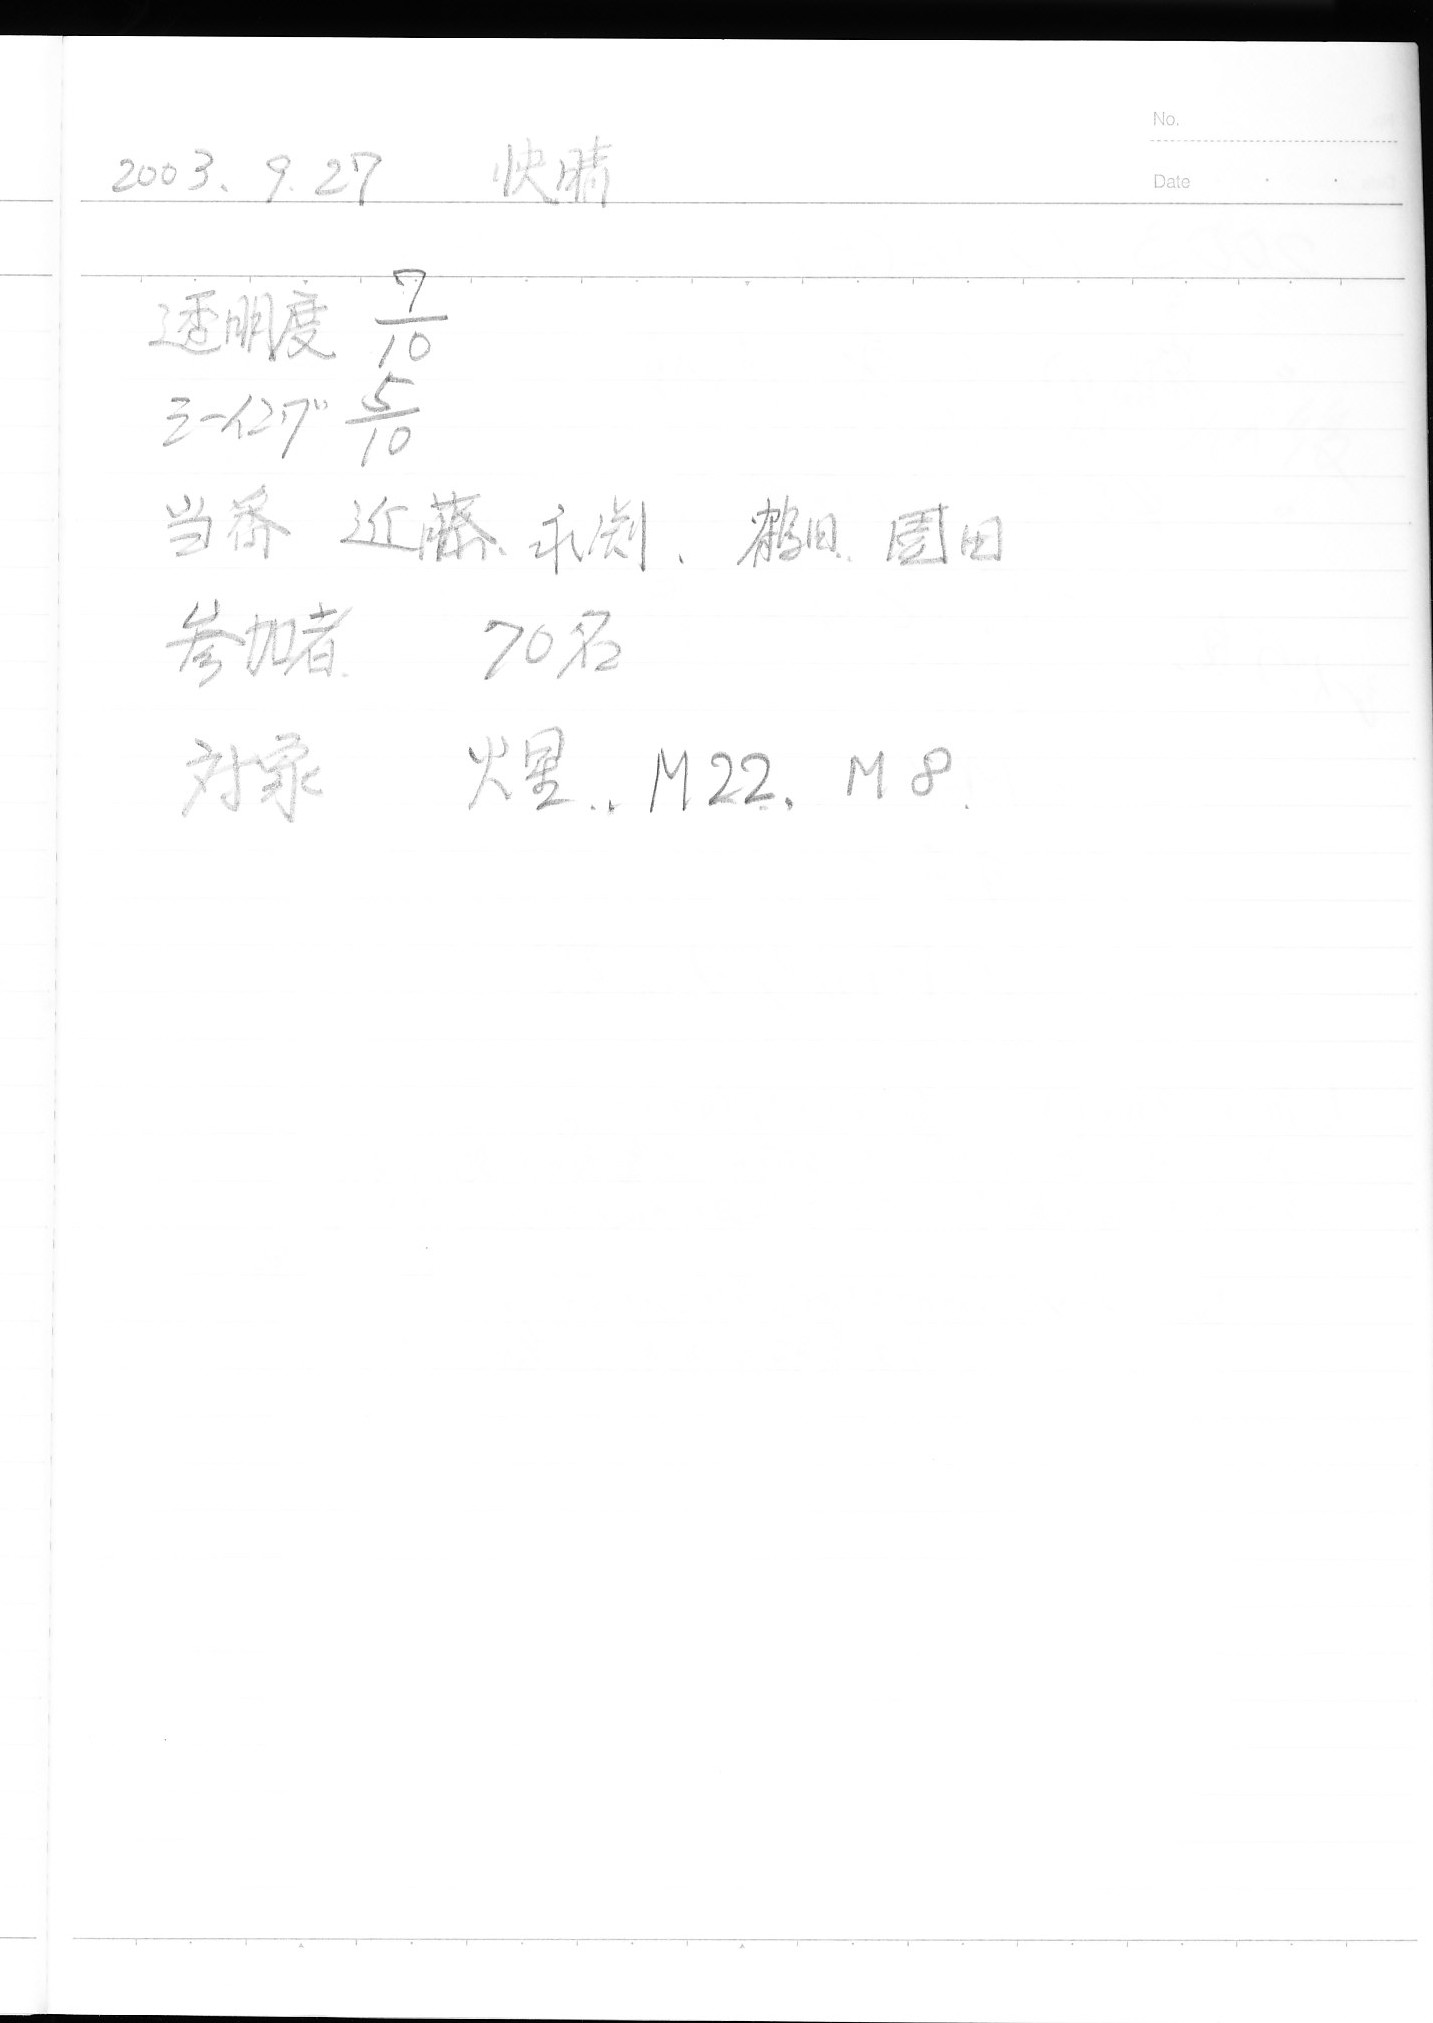 No.
2003. 9. 27 快晴
Date
透明度 7/10
シーイング 5/10
当番 近藤、永渕、鶴田、園田
参加者 70名
対象 火星、M22、M8